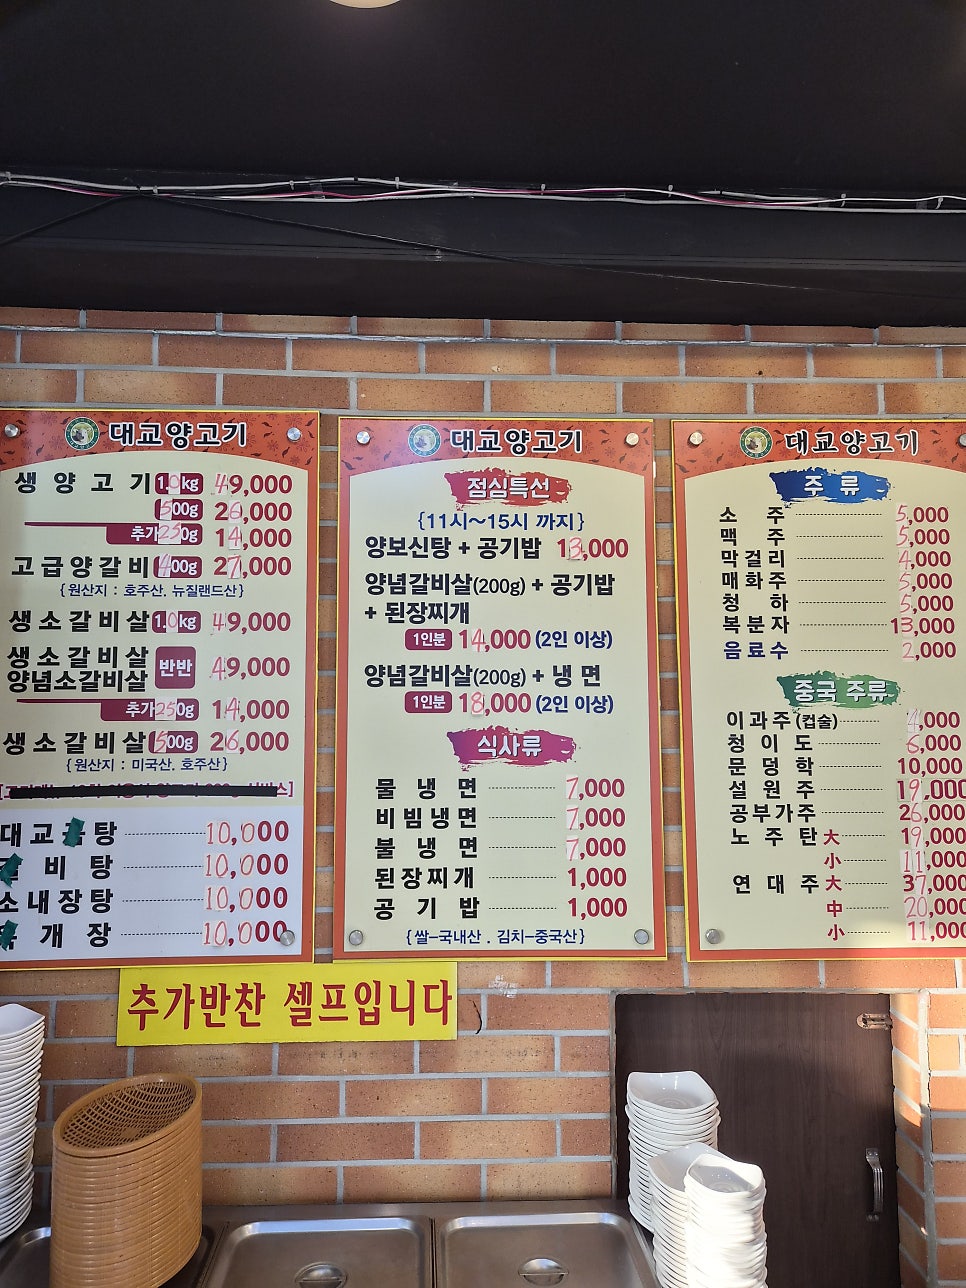 대교양고기
생양고기 1.0kg 49,000
500g 26,000
추가250g 14,000
고급양갈비 400g 27,000
{원산지 : 호주산, 뉴질랜드산}
생소갈비살 1.0kg 49,000
생소갈비살
양념소갈비살 반반 49,000
추가250g 14,000
생소갈비살 500g 26,000
{원산지 : 미국산, 호주산}
대교 탕 10,000
비탕 10,000
소내장탕 10,000
개장 10,000
대교양고기
점심특선
{11시~15시 까지}
양보신탕 + 공기밥 13,000
양념갈비살(200g) + 공기밥
+ 된장찌개
1인분 14,000 (2인 이상)
양념갈비살(200g) + 냉 면
1인분 18,000 (2인 이상)
식사류
물냉면 7,000
비빔냉면 7,000
불냉면 7,000
된장찌개 1,000
공기밥 1,000
{쌀-국내산 . 김치-중국산}
대교양고기
주 류
소주 5,000
맥주 5,000
막걸리 4,000
매화주 5,000
청하 5,000
복분자 13,000
음료수 2,000
중국 주류
이과주(컵술) 4,000
청이도 6,000
문덩학 10,000
설원주 19,000
공부가주 26,000
노주탄 大 19,000
小 11,000
연대주 大 37,000
中 20,000
小 11,000
추가반찬 셀프입니다